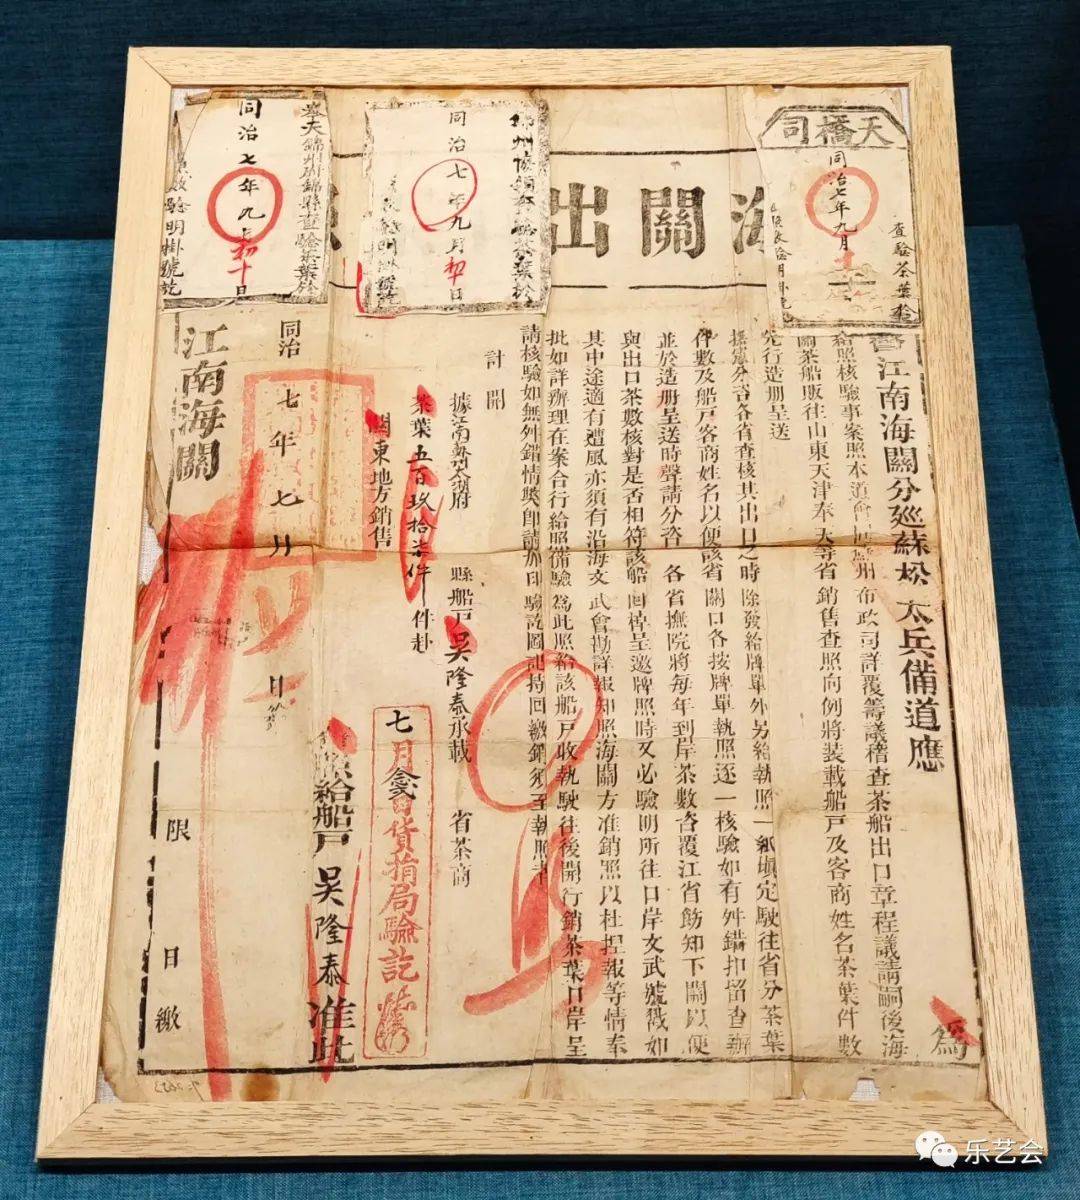 天橋司
同治七年九月
查驗茶葉於
照數驗明掛號訖
錦州協領
查驗茶葉於
同治七年九月初十日
照數驗明掛號訖
奉天錦州府錦縣查驗茶葉於
同治七年九月初十日
照數驗明掛號訖
海關出
江南海關分廵蘇松太兵備道應
為
給照核驗事案照本道會同蘇州布政司詳覆籌議稽查茶船出口章程議請嗣後海
關茶船販往山東天津奉天等省銷售查照向例將裝載船戶及客商姓名茶葉件數
先行造册呈送
撫憲分咨各省查核其出口之時除發給牌單外另給執照一紙填定駛往省分茶葉
件數及船戶客商姓名以便該省關口各按牌單執照逐一核驗如有舛錯扣留查辦
並於造册呈送時聲請分咨各省撫院將每年到岸茶數咨覆江省飭知下關以便
與出口茶數核對是否相符該船回棹呈邀牌照時又必驗明所往口岸文武號戳如
其中途適有遭風亦須有沿海文武會勘詳報知照海關方准銷照以杜捏報等情奉
批如詳辦理在案合行給照備驗為此照給該船戶收執駛往後開行銷茶葉口岸呈
請核驗如無舛錯情獘卽請加印驗訖圖記持回繳銷須至執照者
計開
據江南蘇州太湖府 縣船戶吳隆泰承載 省茶商
茶葉五百玖拾柒件 件赴
關東地方銷售
七月 貨捐局驗訖
照給船戶吳隆泰准此
同治七年七月 日給
江南海關
限 日繳
乐艺会